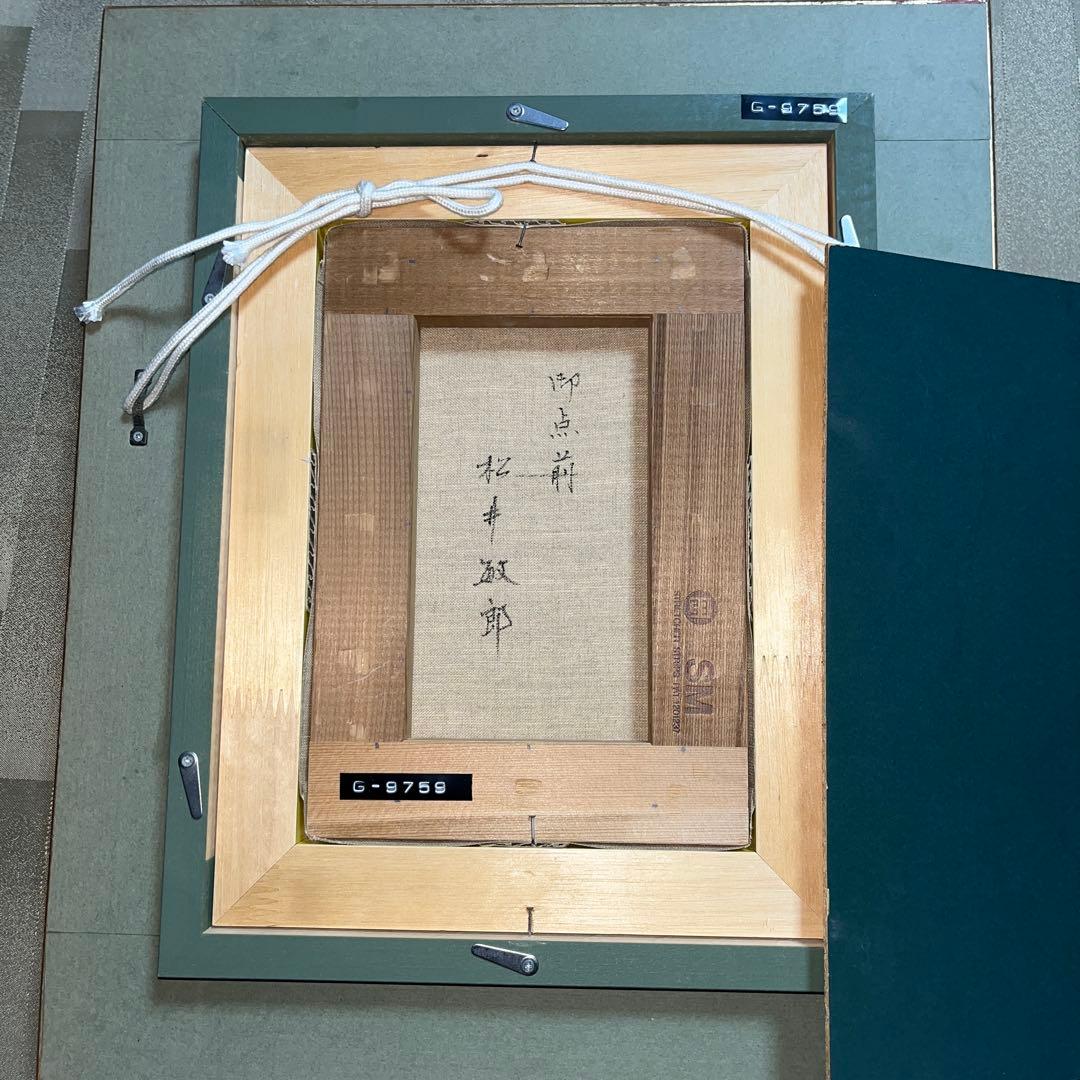 G-9759
御点前
松井敏郎
SM
G-9759